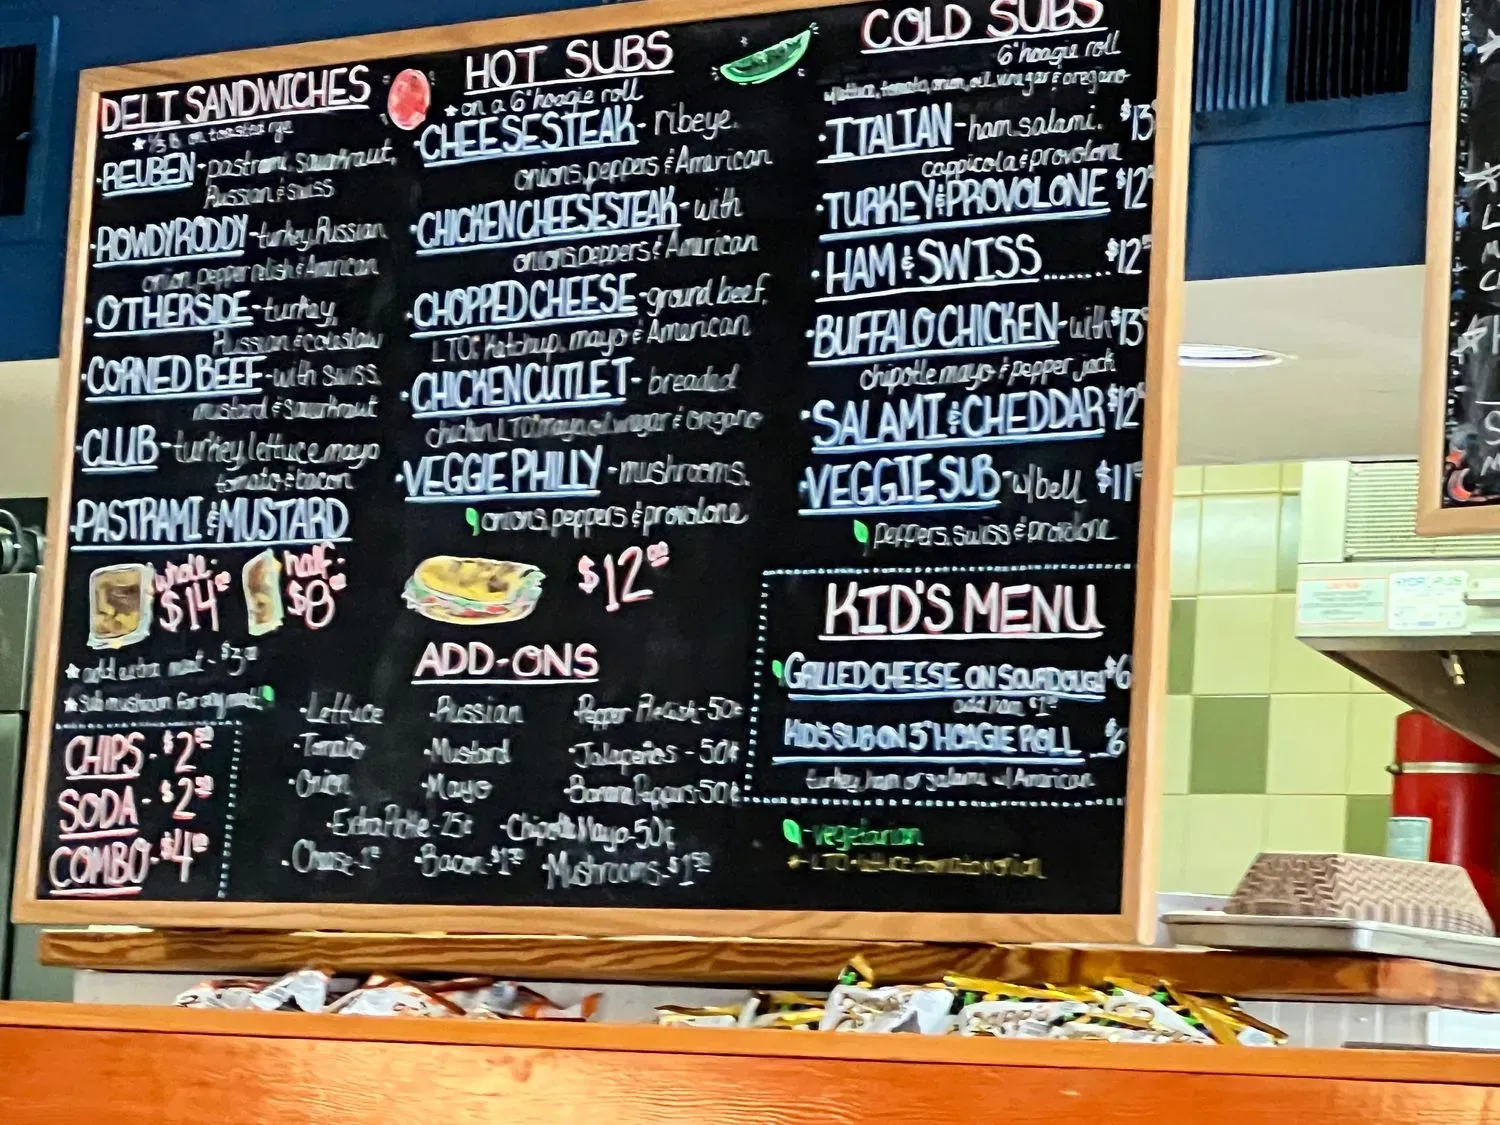 DELI SANDWICHES
★ 1/3 lb. on toasted rye
•REUBEN - pastrami, sauerkraut,
Russian & swiss
•ROWDY RODDY - turkey, Russian
onion, pepper relish & American
•OTHERSIDE - turkey,
Russian & coleslaw
•CORNED BEEF - with swiss,
mustard & sauerkraut
•CLUB - turkey, lettuce, mayo
tomato & bacon
•PASTRAMI & MUSTARD
whole: half:
$14 $8
★ add extra meat - $3
★ Sub mushroom for any meat
CHIPS - $2.50
SODA - $2.50
COMBO - $4
HOT SUBS
★ on a 6" hoagie roll
•CHEESESTEAK - ribeye,
onions, peppers & American
•CHICKEN CHEESESTEAK - with
onions, peppers & American
•CHOPPED CHEESE - ground beef,
LTO, Ketchup, mayo & American
•CHICKEN CUTLET - breaded
chicken, LTO, mayo, oil, vinegar & oregano
•VEGGIE PHILLY - mushrooms,
onions, peppers & provolone
$12.00
ADD-ONS
•Lettuce •Russian Pepper Relish - 50¢
•Tomato •Mustard •Jalapeños - 50¢
•Onion •Mayo •Banana Peppers - 50¢
•Extra Pickle - 25¢ •Chipotle Mayo - 50¢
•Cheese - 1 •Bacon - $1.50 •Mushrooms - $1.50
COLD SUBS
6" hoagie roll
w/ lettuce, tomato, onion, oil, vinegar & oregano
•ITALIAN - ham, salami, $13
cappicola & provolone
•TURKEY & PROVOLONE $12
•HAM & SWISS ....... $12
•BUFFALO CHICKEN - with $13
chipotle mayo & pepper jack
•SALAMI & CHEDDAR $12
•VEGGIE SUB - w/ bell $11
peppers, swiss & provolone
KID'S MENU
GRILLED CHEESE ON SOURDOUGH $6
add ham $1
KID'S SUB ON 3" HOAGIE ROLL ... $6
turkey, ham or salami w/ American
- vegetarian
LTO - lettuce, tomato & onion